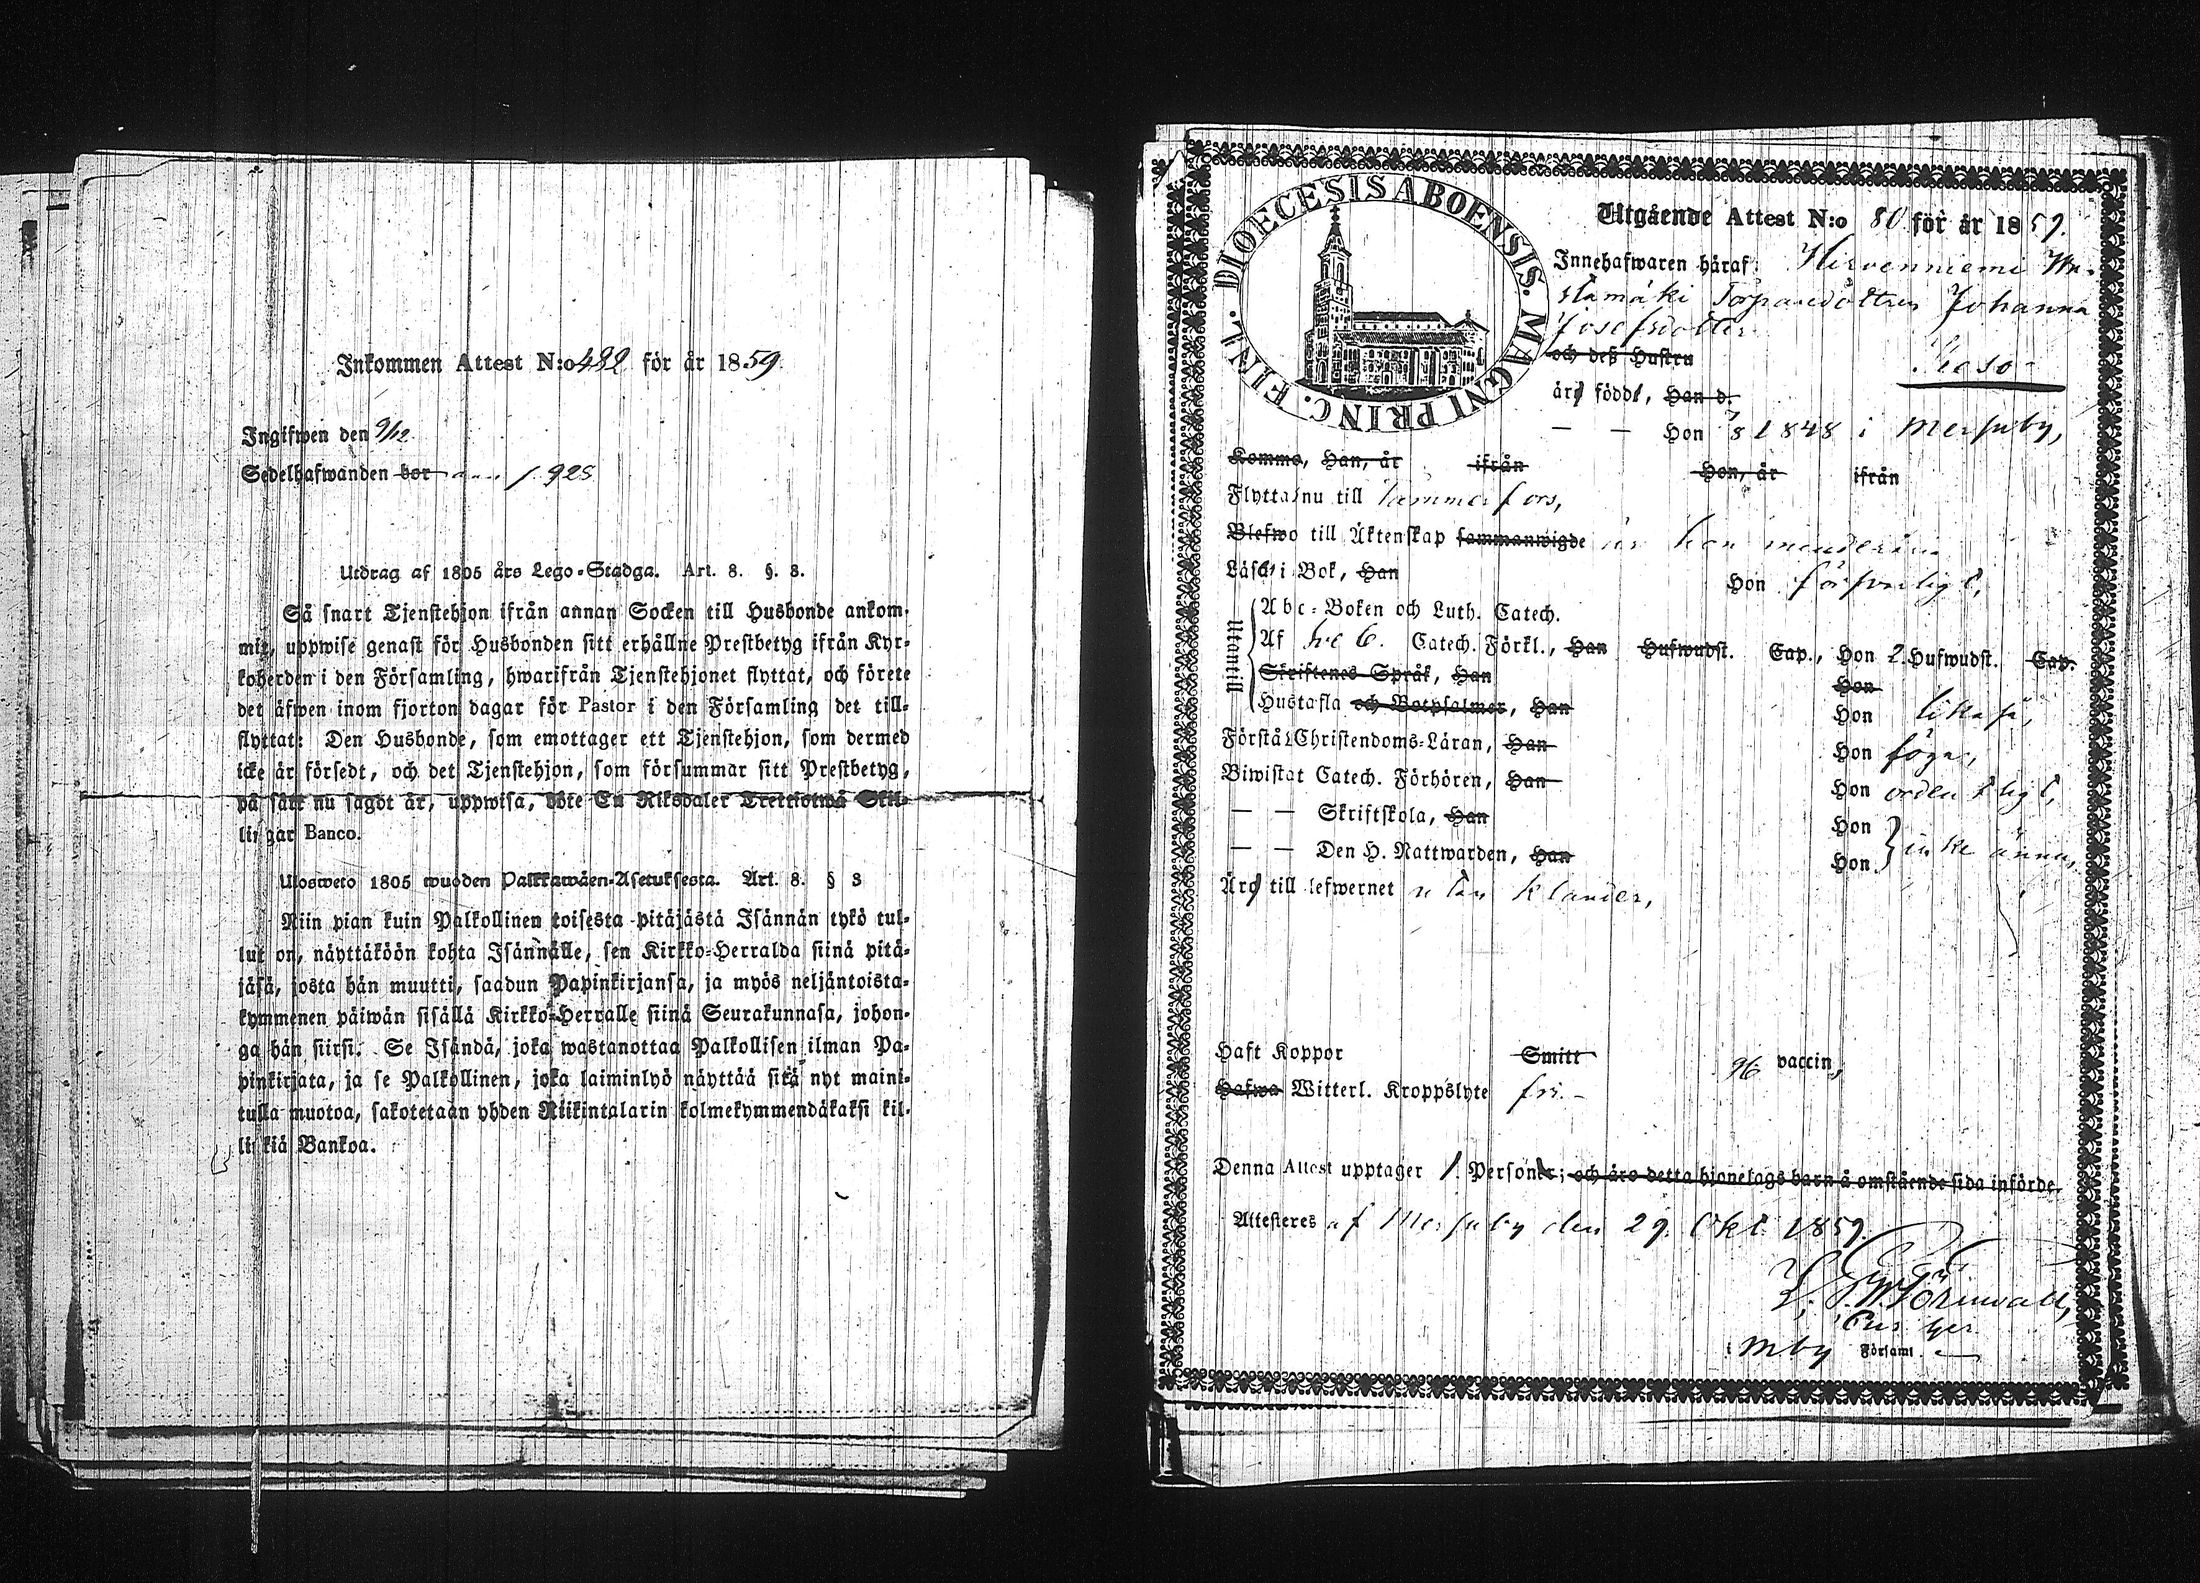 Inkommen Attest N:o 482 för år 1859
Ingifwen den 9/12
Sedelhafwanden bor p. 925
Utdrag af 1805 års Lego-Stadga. Art. 8. §. 3.
Så snart Tjenstehjon ifrån annan Socken till Husbonde ankom-
mit, uppwise genast för Husbonden sitt erhållne Prestbetyg ifrån Kyr-
koherden i den Församling, hwarifrån Tjenstehjonet flyttat, och förete
det äfwen inom fjorton dagar för Pastor i den Församling det till-
flyttat: Den Husbonde, som emottager ett Tjenstehjon, som dermed
icke är försedt, och det Tjenstehjon, som försummar sitt Prestbetyg,
på sätt nu sagdt är, uppwisa, böte En Riksdaler Trettiotwå Skil-
lingar Banco.
Ulosweto 1805 wuoden Palkkawäen-Asetuksesta. Art. 8. § 3
Niin pian kuin Palkollinen toisesta pitäjästä Isännän tykö tul-
lut on, näyttäköön kohta Isännälle, sen Kirkko-Herralda siinä pitä-
jäsä, josta hän muutti, saadun Papinkirjansa, ja myös neljäntoista-
kymmenen päiwän sisällä Kirkko-Herralle siinä Seurakunnasa, johon-
ga hän siirsi. Se Isändä, joka wastanottaa Palkollisen ilman Pa-
pinkirjata, ja se Palkollinen, joka laiminlyö näyttää sitä nyt maini-
tulla muotoa, sakotetaan yhden Riikintalarin kolmekymmendäkaksi kil-
linkiä Bankoa.
DIOECESIS ABOENSIS. MAGNI PRINC. FINL.
Utgående Attest N:o 80 för år 1859.
Innehafwaren häraf: Hirvenniemi
stamäki Torparedottren Johanna
Josefsdotter
och deß Hustru
äro födde, Han d.
— — Hon 1848 i Merjuby,
Komme, Han, år ifrån Hon, år ifrån
Flytta nu till Tammerfors,
Blefwo till Äktenskap sammanwigde är hon minderårig
Läsa i Bok, Han Hon försvarligt,
Utantill
Abc-Boken och Luth. Catech.
Af Catech. Förkl., Han Hufwudst. Cap., Hon 2. Hufwudst. Cap.
Skriftenes Språk, Han Hon
Hustafla och Botpsalmer, Han Hon likaså,
Förstå Christendoms-Läran, Han Hon föga,
Biwistat Catech. Förhören, Han Hon ordentligt,
— — Skriftskola, Han Hon
— — Den H. Nattwarden, Han Hon icke ännu,
Äro till lefwernet utan klander,
Haft Koppor Smitt vaccin,
Hafwa Witterl. Kroppslyte fri. -
Denna Attest upptager 1. Personer; och äro detta hjonelags barn å omstående sida införde.
Attesteres af Merjuby den 29. Okt. 1859.
i Mby Församl.